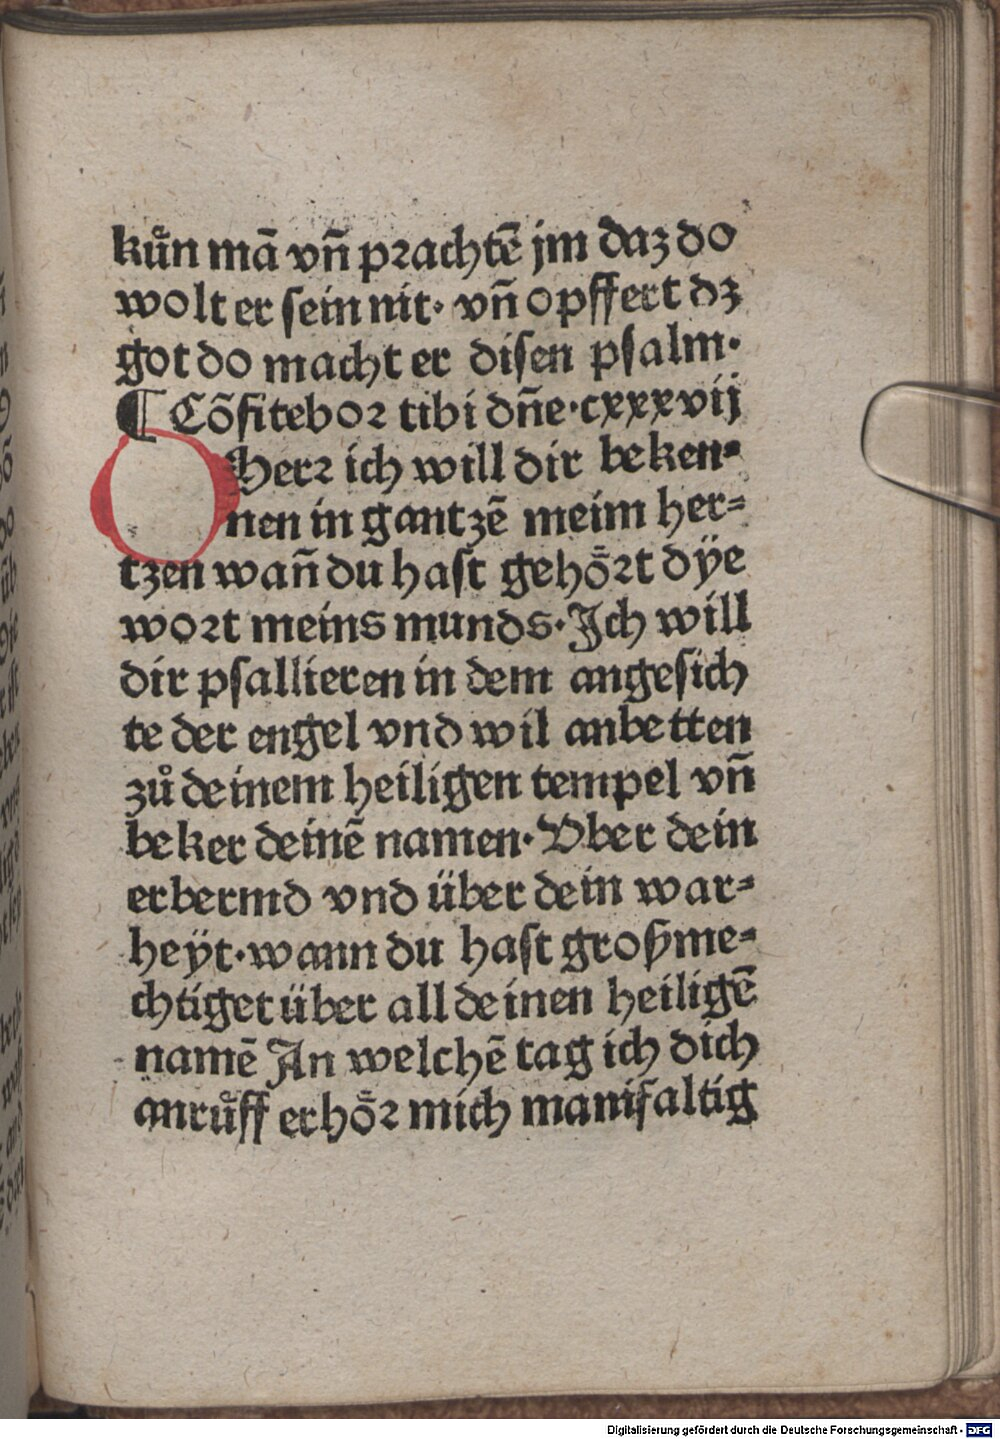 kuͤn mā vn̄ prachtē jm daz do
wolt er sein nit· vn̄ opffert dz
got do macht er disen psalm·
¶ Cōfitebor tibi dn̄e·cxxxvij
O Herr ich will dir beken⸗
nen in gantzē meim her⸗
tzen wan̄ du hast gehoͤrt dÿe
wort meins munds·Ich will
dir psallieren in dem angesich
te der engel vnd wil anbetten
zuͦ deinem heiligen tempel vn̄
beker deinē namen·Vber dein
erbermd vnd über dein war⸗
heÿt·wann du hast großme⸗
chtiget über all deinen heiligē
namē In welchē tag ich dich
anruͤff erhoͤr mich manifaltig
Digitalisierung gefördert durch die Deutsche Forschungsgemeinschaft - DFG